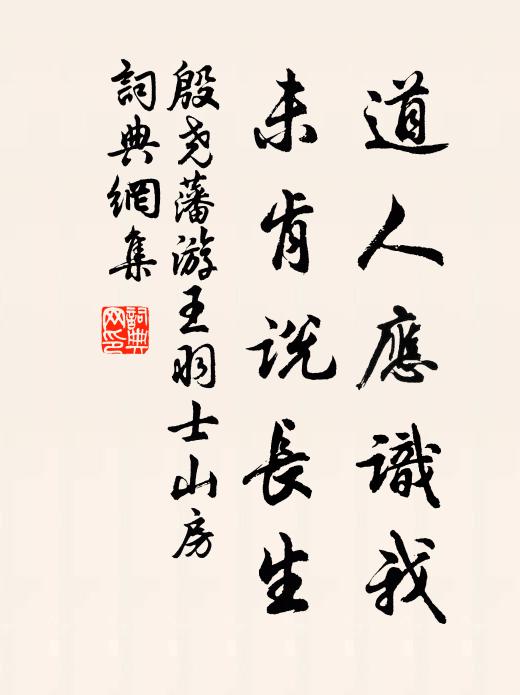 道人應識我
未肯說長生
殷尧藩游王羽士山房
詞典網集
詞典网印